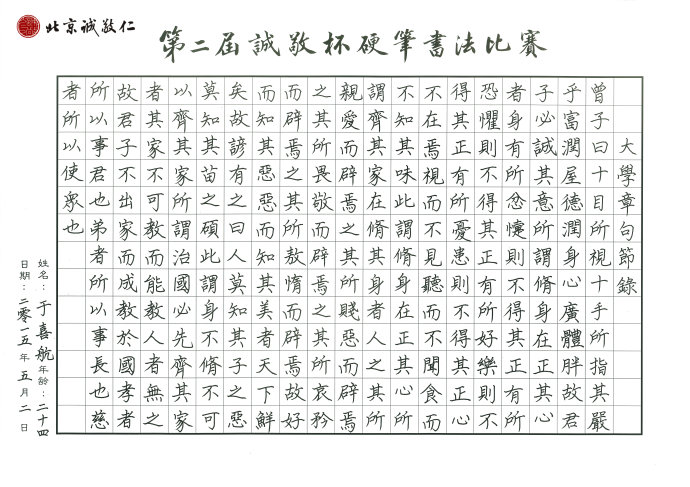 北京誠敬仁
第二屆誠敬杯硬筆書法比賽
大學章句節錄
曾子曰十目所視十手所指其嚴
乎富潤屋德潤身心廣體胖故君
子必誠其意所謂脩身在正其心
者身有所忿懥則不得其正有所
恐懼則不得其正有所好樂則不
得其正有所憂患則不得其正心
不在焉視而不見聽而不聞食而
不知其味此謂脩身在正其心所
謂齊其家在脩其身者人之其所
親愛而辟焉之其所賤惡而辟焉
之其所畏敬而辟焉之其所哀矜
而辟焉之其所敖惰而辟焉故好
而知其惡惡而知其美者天下鮮
矣故諺有之曰人莫知其子之惡
莫知其苗之碩此謂身不脩不可
以齊其家所謂治國必先齊其家
者其家不可教而能教人者無之
故君子不出家而成教於國孝者
所以事君也弟者所以事長也慈
者所以使眾也
姓名：于喜航年齡：二十四
日期：二零一五年五月二日